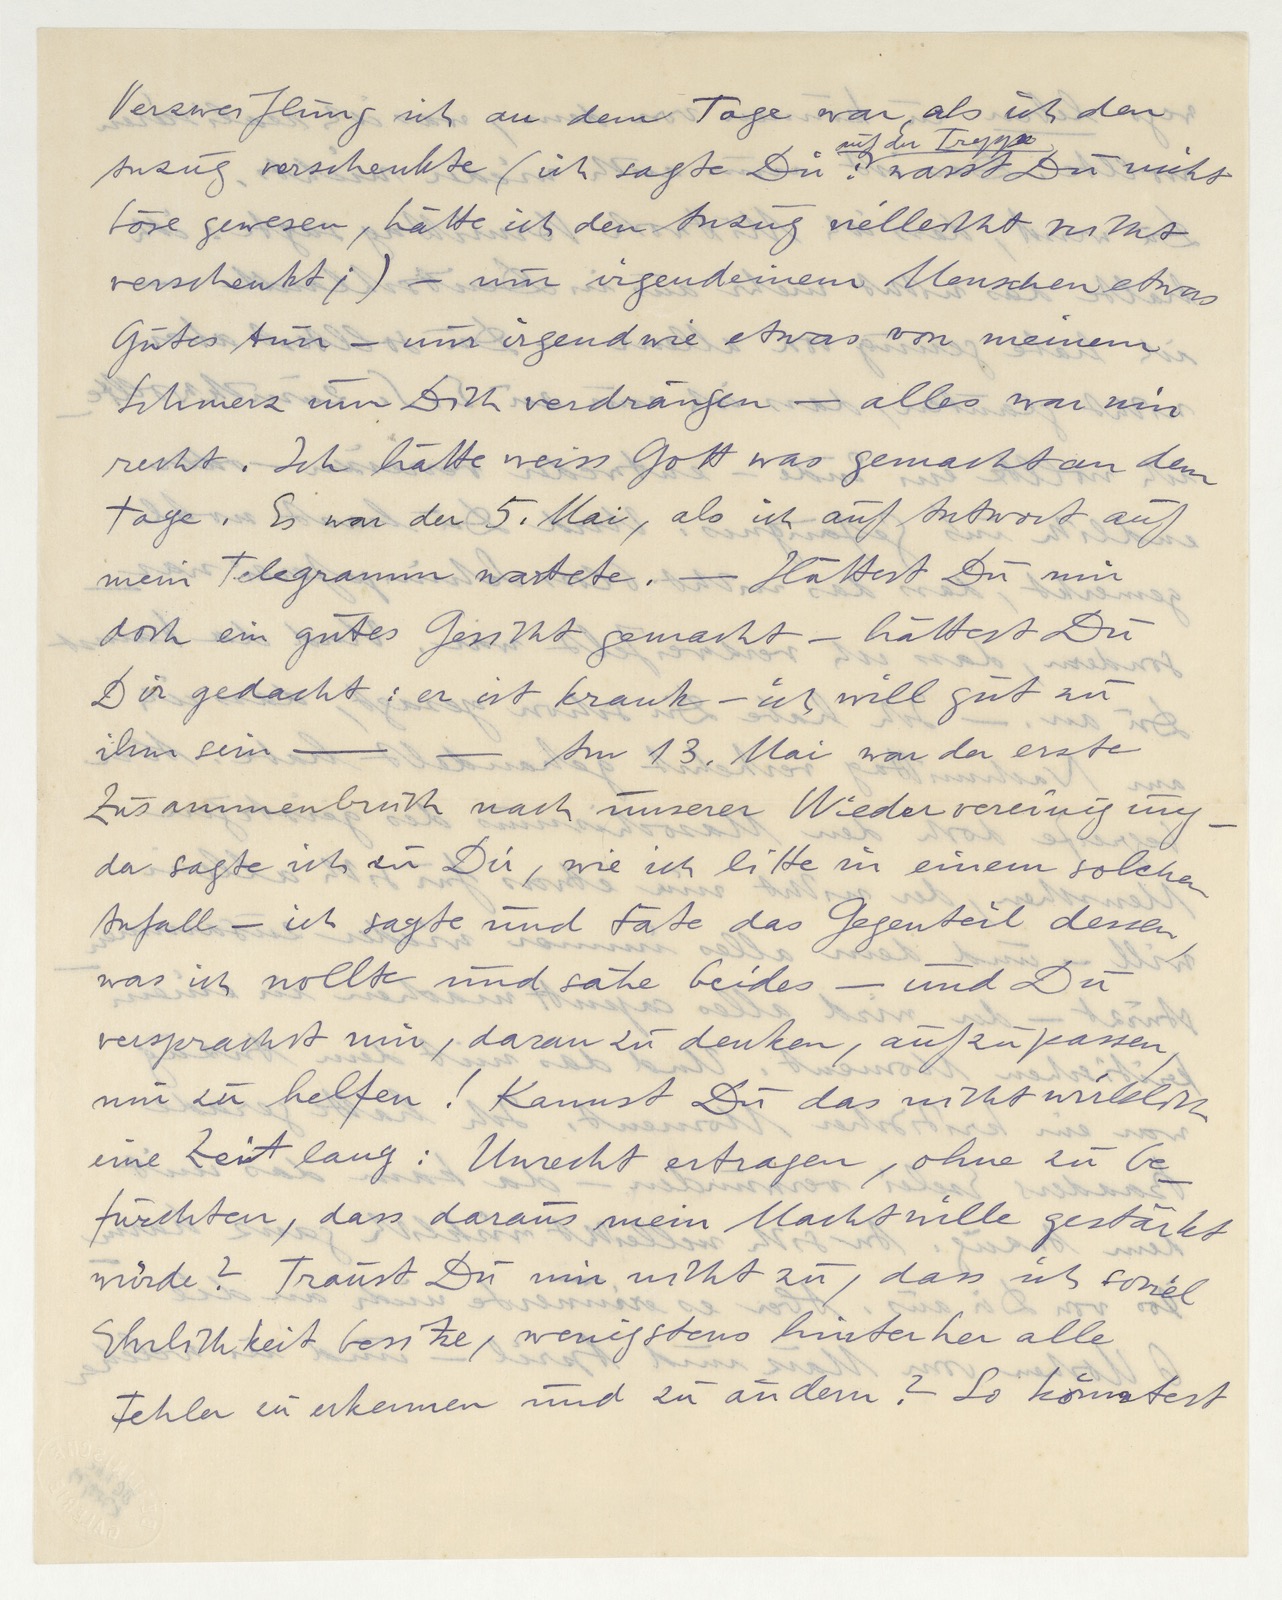 Verzweiflung ich an dem Tage war, als ich den
auf der Treppe
Anzug verschenkte (ich sagte Dir: warst Du nicht
böse gewesen, hätte ich den Anzug vielleicht nicht
verschenkt;) – um irgendeinem Menschen etwas
Gutes tun – um irgendwie etwas von meinem
Schmerz um Dich verdrängen – alles war mir
recht. Ich hätte weiss Gott was gemacht an dem
Tage. Es war der 5. Mai, als ich auf Antwort auf
mein Telegramm wartete. — Hättest Du mir
doch ein gutes Gesicht gemacht – hättest Du
Dir gedacht: er ist krank – ich will gut zu
ihm sein — — Am 13. Mai war der erste
Zusammenbruch nach unserer Wiedervereinigung –
da sagte ich zu Dir, wie ich litte in einem solchen
Anfall – ich sagte und täte das Gegenteil dessen,
was ich wollte und sähe beides – und Du
versprachst mir, daran zu denken, aufzupassen,
mir zu helfen! Kannst Du das nicht wirklich
eine Zeit lang: Unrecht ertragen, ohne zu be-
fürchten, dass daraus mein Machtwille gestärkt
würde? Traust Du mir nicht zu, dass ich soviel
Ehrlichkeit besitze, wenigstens hinterher alle
Fehler zu erkennen und zu ändern? So könntest